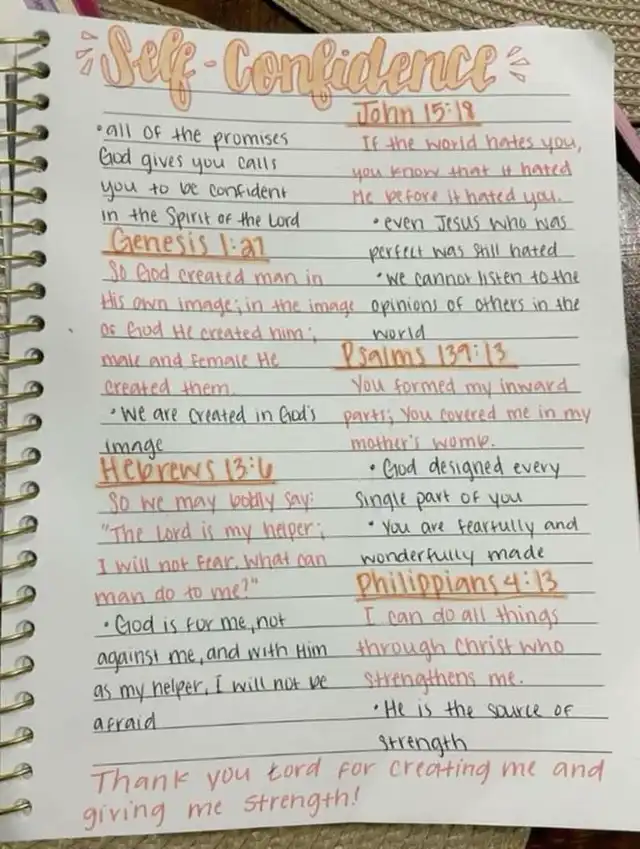 Self-Confidence
•all of the promises
God gives you calls
you to be confident
in the Spirit of the Lord
Genesis 1:27
So God created man in
His own image; in the image
of God He created him;
male and female He
created them.
•We are created in God's
image
Hebrews 13:6
So we may boldly say:
"The Lord is my helper;
I will not fear. What can
man do to me?"
•God is for me, not
against me, and with Him
as my helper, I will not be
afraid
John 15:18
If the world hates you,
you know that it hated
Me before it hated you.
•even Jesus who was
perfect was still hated
•we cannot listen to the
opinions of others in the
world
Psalms 139:13
You formed my inward
parts; You covered me in my
mother's womb.
•God designed every
single part of you
•You are fearfully and
wonderfully made
Philippians 4:13
I can do all things
through Christ who
strengthens me.
•He is the source of
strength
Thank you Lord for creating me and
giving me strength!